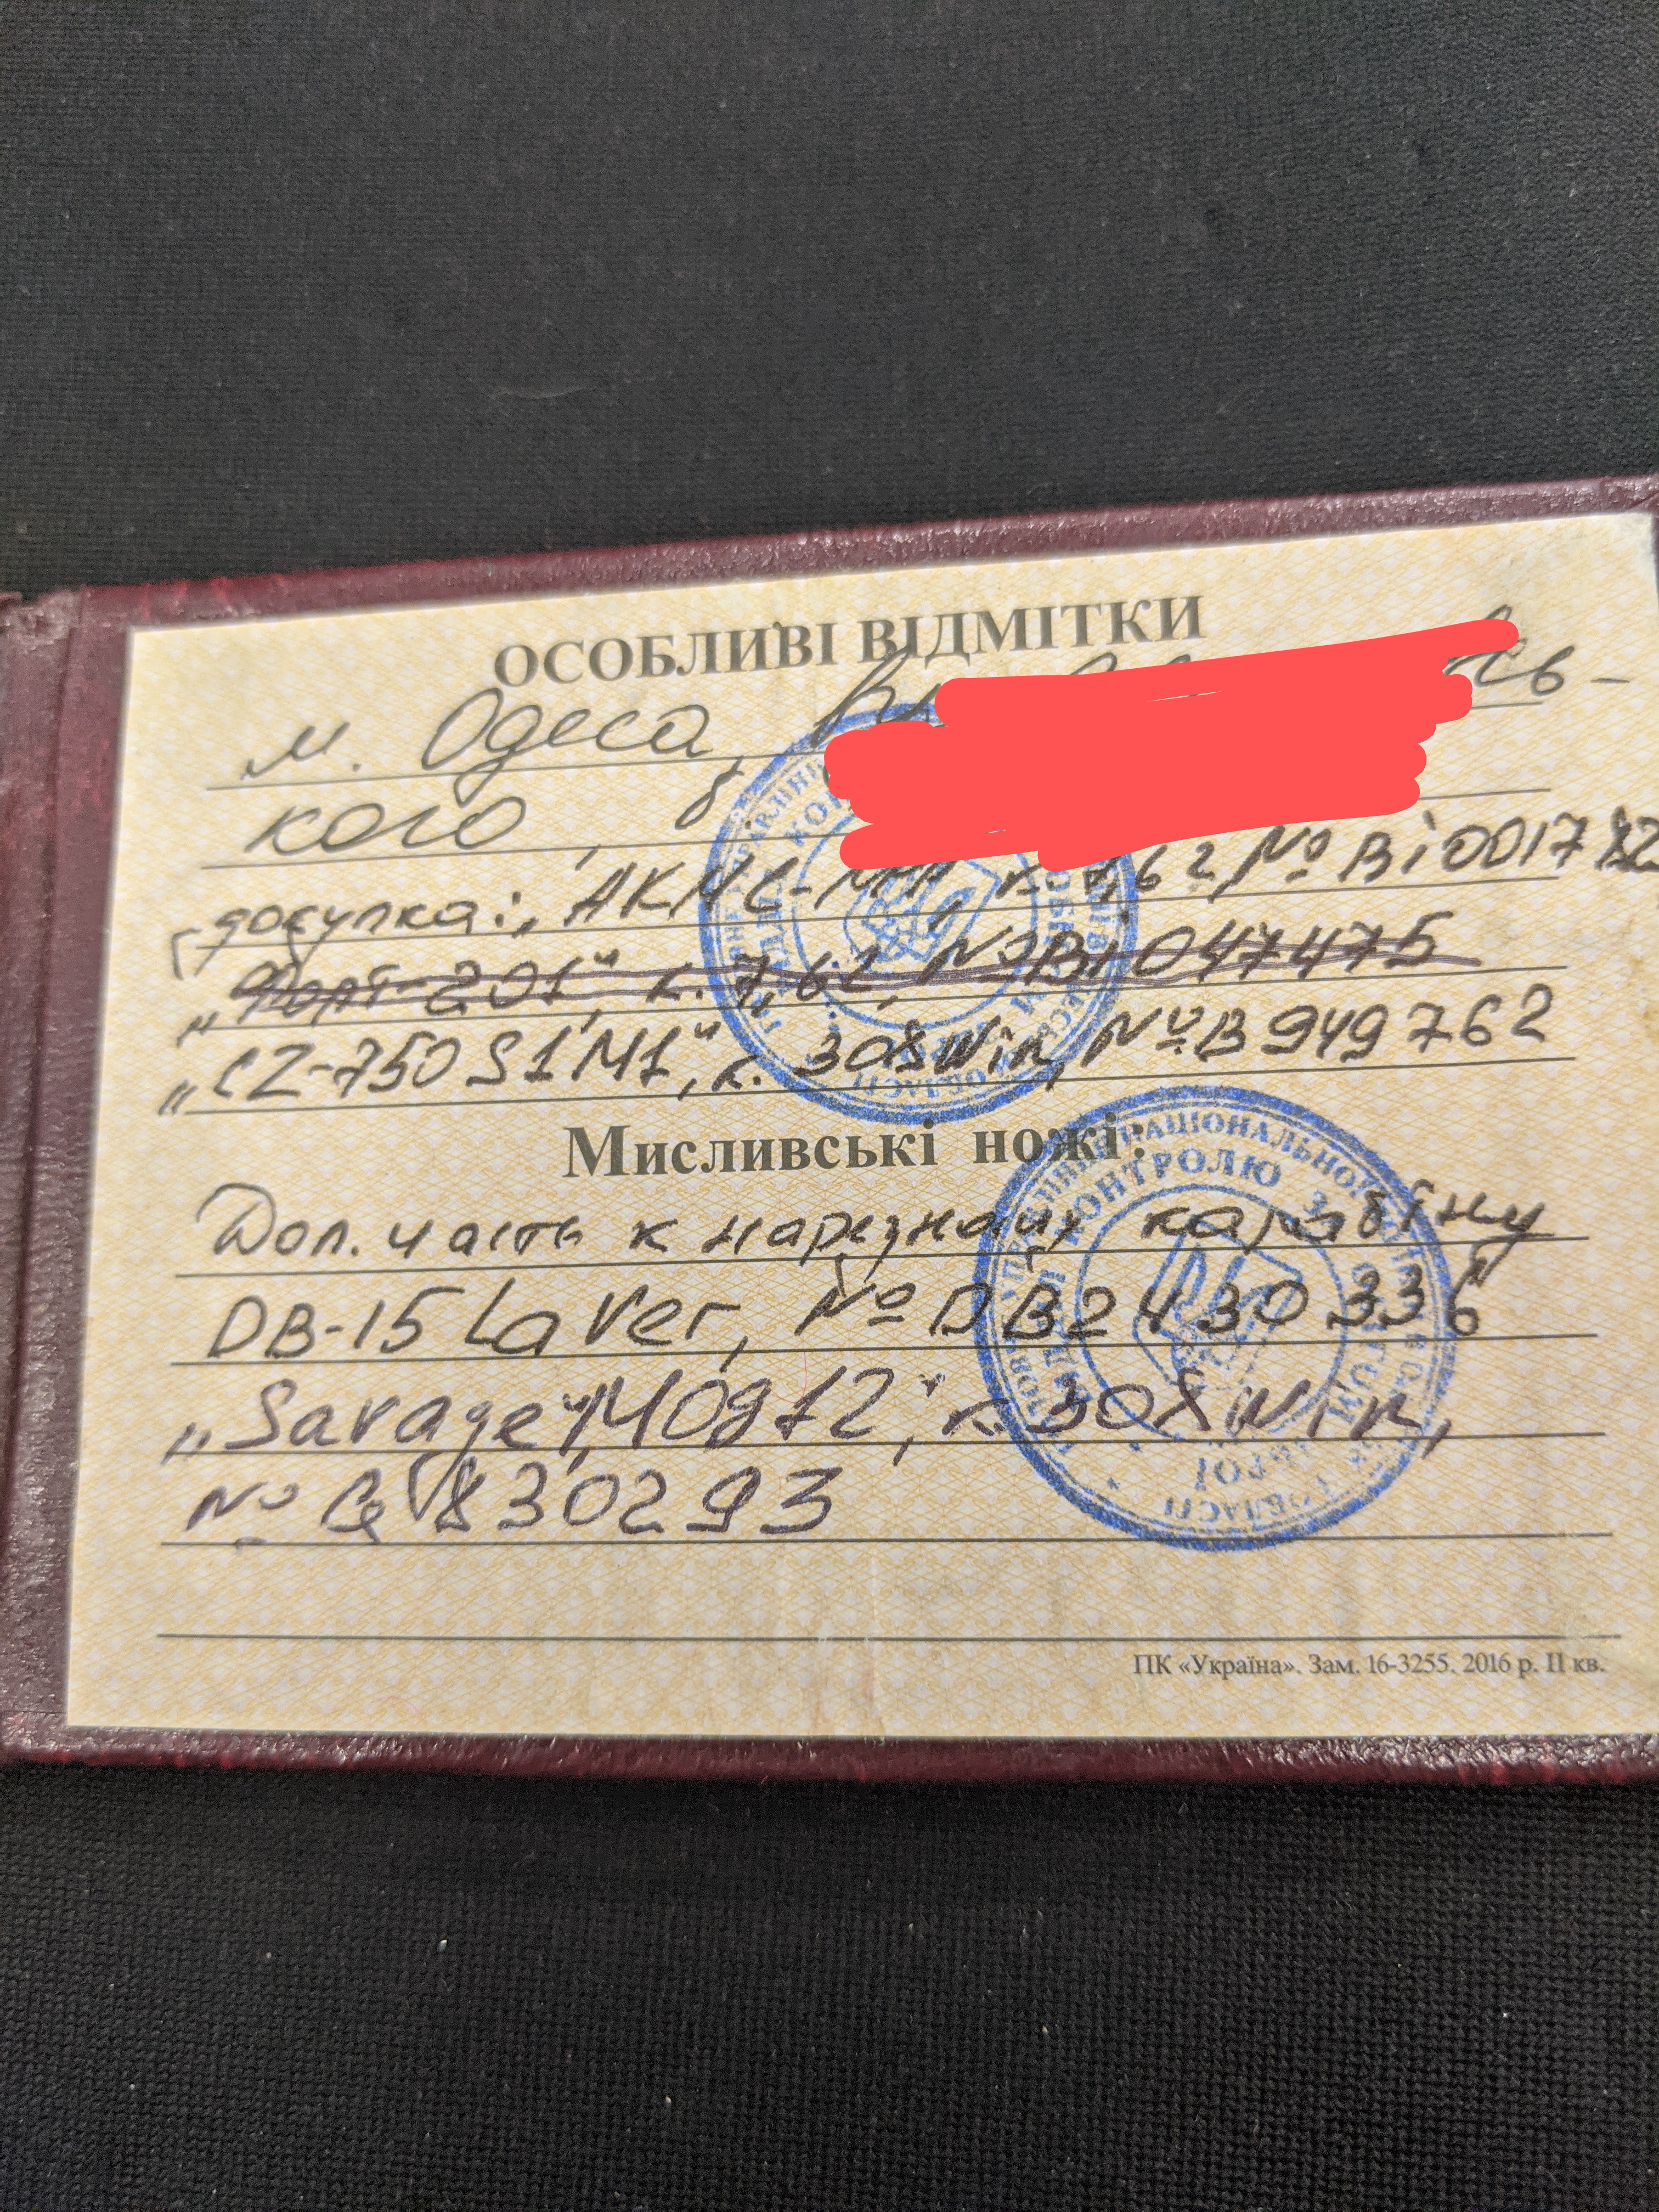 ОСОБЛИВІ ВІДМІТКИ
м. Одеса,
кого, б.
докупка: АКМС-МФ, к. 7,62 № Ві 0017
„Форт-201", к. 7,62, № Ві 047475
„CZ-750 S1M1", к. 308Win, № B 949762
Мисливські ножі:
Доп. часть к нарезному карабіну
DB-15 Laver, № DB2430336
„Savage", к. 308 Win,
№ 830293
ПК «Україна». Зам. 16-3255. 2016 р. II кв.